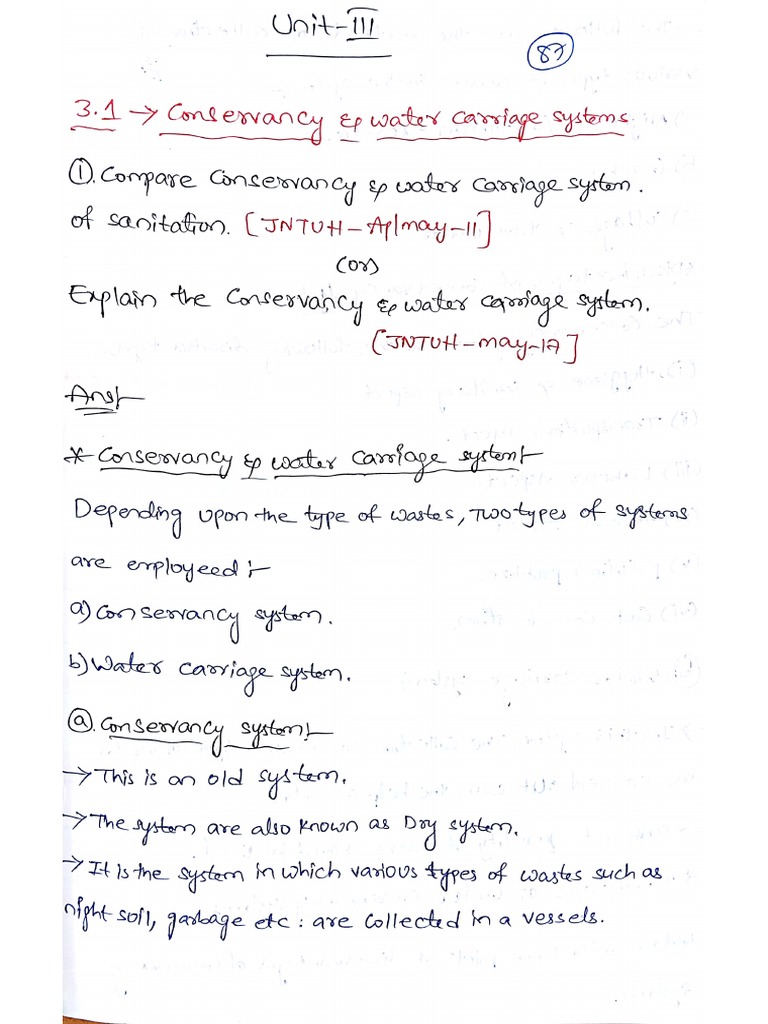 Unit-III
87
3.1 → Conservancy & water carriage systems
①. Compare Conservancy & water carriage system.
of sanitation. [JNTUH-Ap/may-11]
(or)
Explain the Conservancy & water carriage system.
[JNTUH-may-17]
Ans:-
* Conservancy & water carriage system:-
Depending upon the type of wastes, Two types of systems
are employeed:-
a) Conservancy system.
b) Water carriage system.
ⓐ. Conservancy system:-
→ This is an old system.
→ The system are also known as Dry system.
→ It is the system in which various types of wastes such as
night soil, garbage etc: are collected in a vessels.